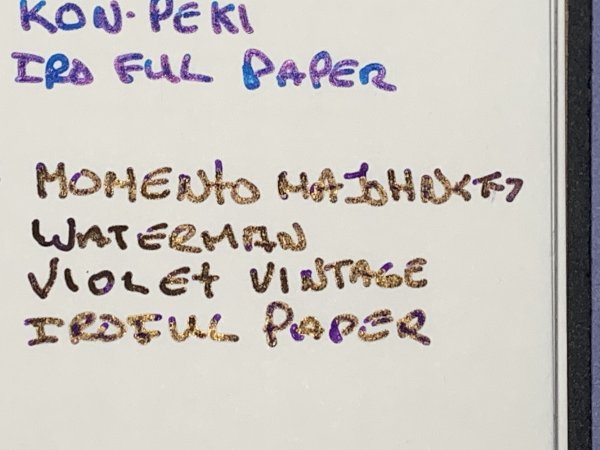 KON-PEKI
IROFUL PAPER
MOMENTO
WATERMAN
VIOLET VINTAGE
IROFUL PAPER